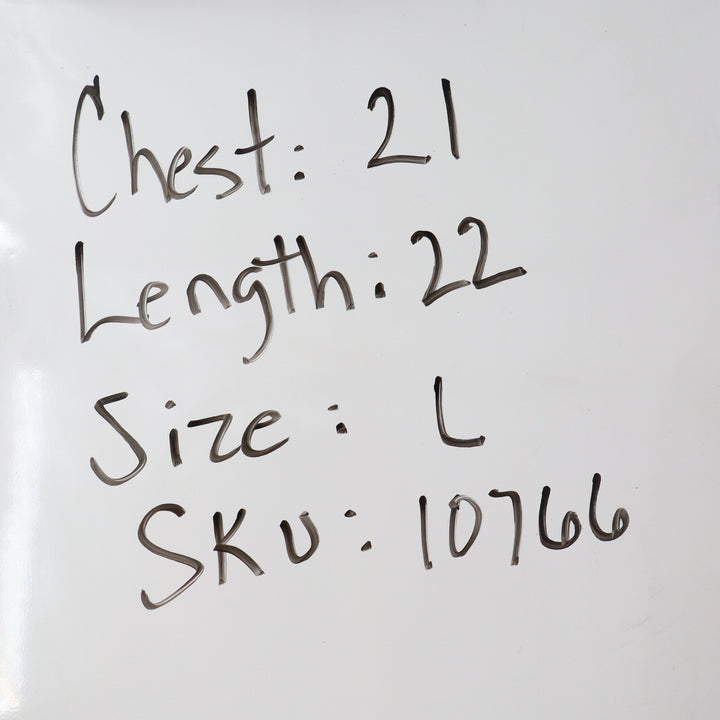 Chest: 21
Length: 22
Size: L
SKU: 10766